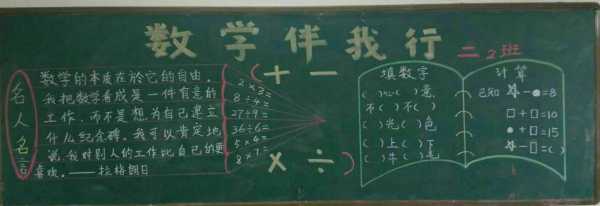 数学伴我行 二2班
名人名言
数学的本质在於它的自由.
我把数学看成是一件有意的
工作,而不是想为自己建立
什么纪念碑。我可以肯定地
说,我对别人的工作比自己的更
喜欢。——拉格朗日
( + −
2×3=
8÷4=
27÷9=
36÷6=
5×4=
8×7=
× ÷ )
填数字
( )心( )意
不( )不( )
( )光( )色
( )上( )下
( )牛( )毛
计算
已知 −●=8
□+□=10
●+□=15
−□=( )